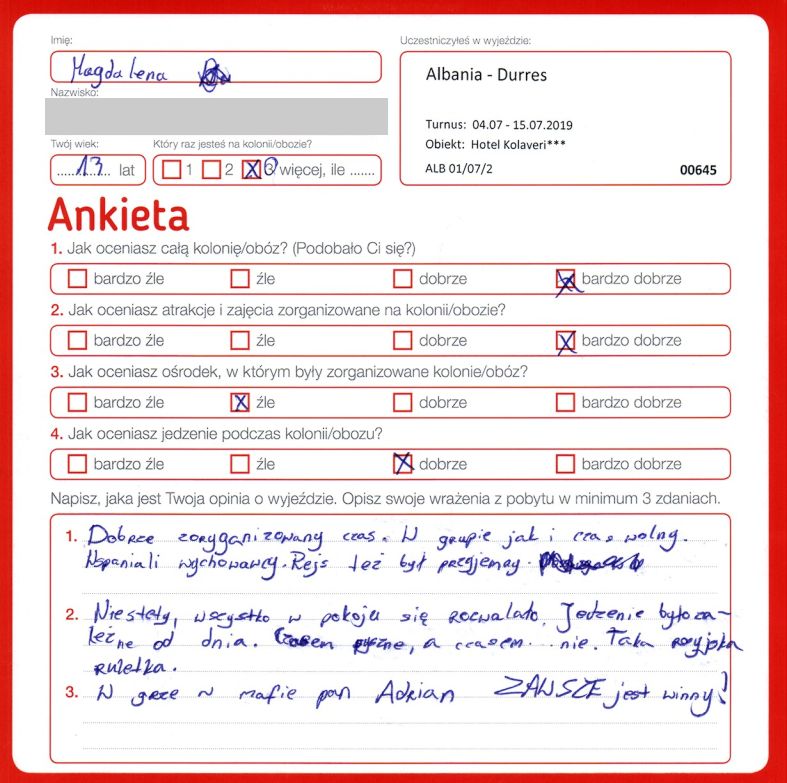 Imię:
Magdalena
Nazwisko:
Twój wiek:
13 lat
Który raz jesteś na kolonii/obozie?
1 2 3 więcej, ile .......
Uczestniczyłeś w wyjeździe:
Albania - Durres
Turnus: 04.07 - 15.07.2019
Obiekt: Hotel Kolaveri***
ALB 01/07/2 00645
Ankieta
1. Jak oceniasz całą kolonię/obóz? (Podobało Ci się?)
bardzo źle źle dobrze bardzo dobrze
2. Jak oceniasz atrakcje i zajęcia zorganizowane na kolonii/obozie?
bardzo źle źle dobrze bardzo dobrze
3. Jak oceniasz ośrodek, w którym były zorganizowane kolonie/obóz?
bardzo źle źle dobrze bardzo dobrze
4. Jak oceniasz jedzenie podczas kolonii/obozu?
bardzo źle źle dobrze bardzo dobrze
Napisz, jaka jest Twoja opinia o wyjeździe. Opisz swoje wrażenia z pobytu w minimum 3 zdaniach.
1. Dobrze zoryganizowany czas. W grupie jak i czas wolny.
Wspaniali wychowawcy. Rejs też był przyjemny.
2. Niestety, wszystko w pokoju się rozwalało. Jedzenie było za-
leżne od dnia. Czasem pyszne, a czasem... nie. Taka rosyjska
ruletka.
3. W grze w mafie pan Adrian ZAWSZE jest winny!